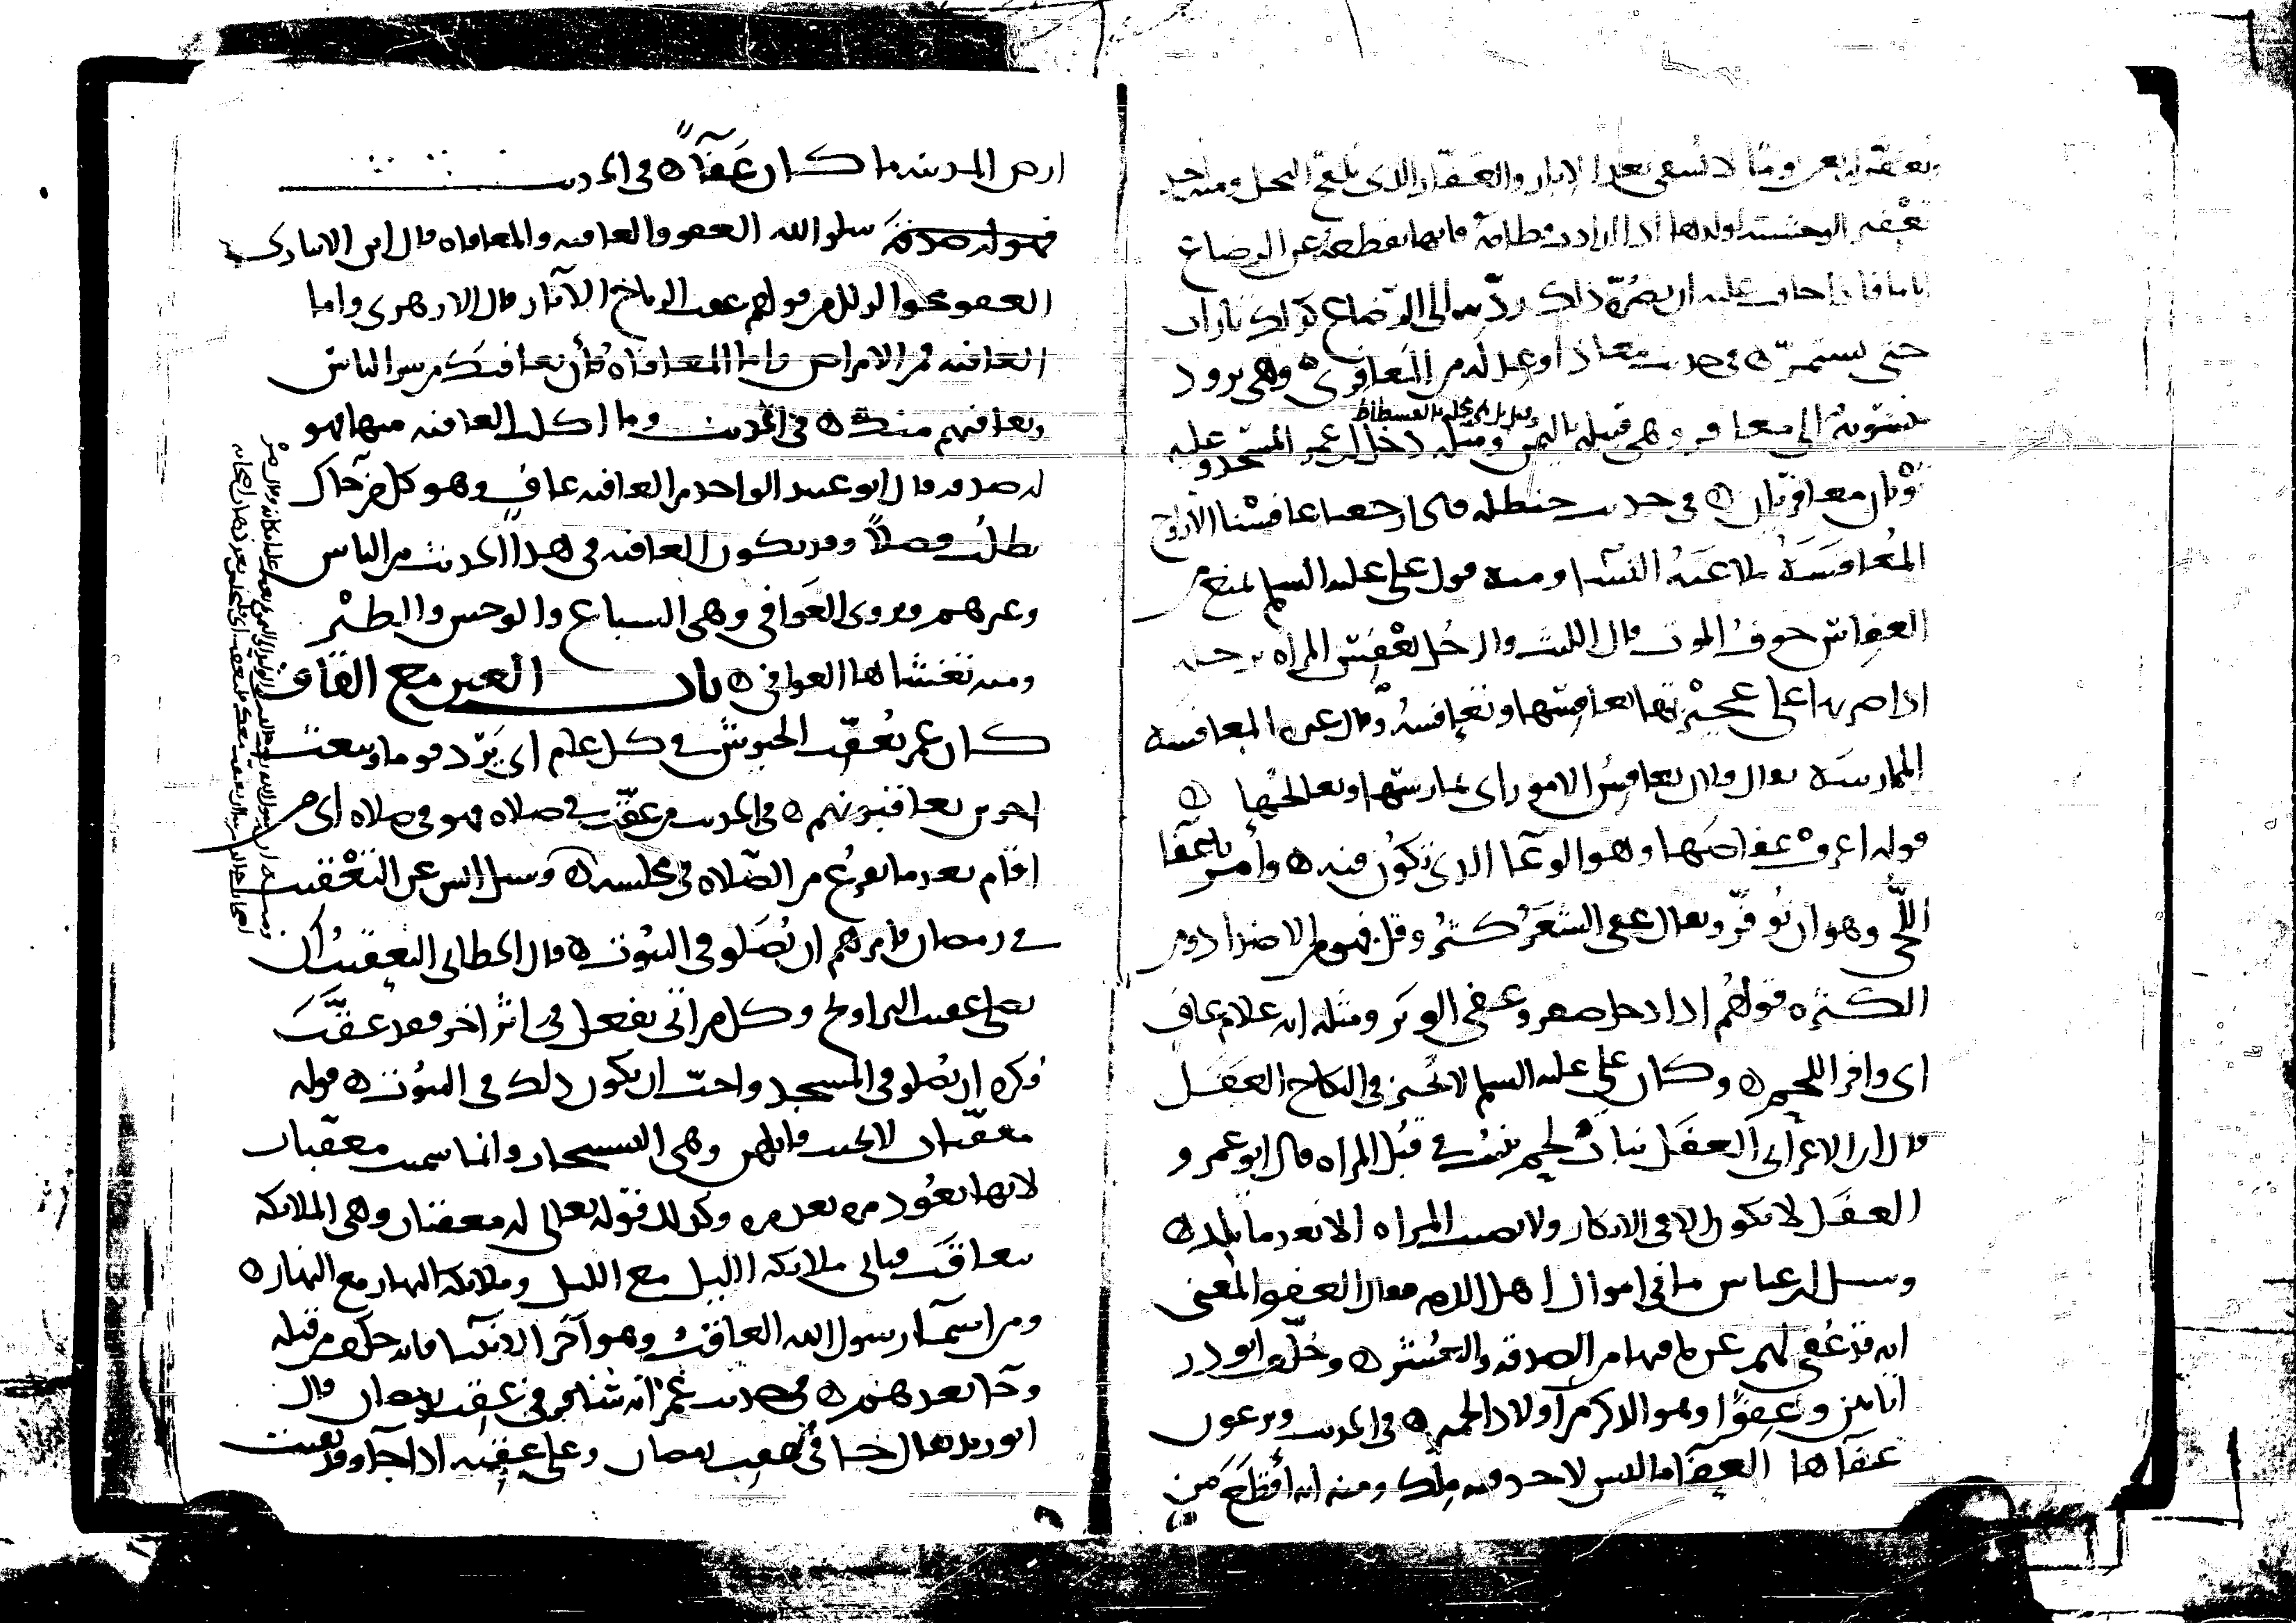 وتعفيره اربعين يوما لا تسقى بعد الابار والعفار الذى تلقح النخل ومنه اخذ
تعفير الوحشية ولدها اذا ارادت فطامه فانها تقطعه عن الرضاع
اياما فاذا خافت عليه ان يضره ذلك ردته الى الرضاع كذلك تارات
حتى يستمر ه فى حديث معاذ او عدله من المعافرى ه وهى برود
منسوبة الى معافر وهى قبيلة باليمن ومثله دخل ابن عمر المسجد وعليه
ثوبان معافريان ه فى حديث حنظلة فاذا رجعنا عافسنا الازواج
المعافسة ملاعبة النسا ومنه قول على عليه السلم يمنع من
العفاس خوف الموت قال الليث والرجل يعفس المراه برجله
اذا ضربها على عجيزتها يعافسها وتعافسه وقال غيره المعافسة
الممارسة يقال فلان يعافس الامور اى يمارسها ويعالجها ه
قوله اعرف عفاصها وهو الوعا الذى تكون فيه ه وأمر باعفا
اللحى وهو ان توفر ويقال عفى الشعر كثر وقل فهو من الاضداد ومن
الكثرة قولهم اذا دخل صفر وعفى الوبر ومثله انه غلام عاف
اى وافر اللحم ه وكان على عليه السلم لا يجيز فى النكاح العفل
قال ابن الاعرابى العفل نبات لحم ينبت فى قبل المراه قال ابو عمرو
العفل لا يكون الا فى الابكار ولا يصيب المراه الا بعد ما تلد ه
وسئل ابن عباس ما فى اموال اهل الذمه فقال العفو المعنى
انه قد عفى لهم عن ما فيها من الصدقه والعشر ه وخلف ابو ذر
اتانين وعفوا وهو الذكر من اولاد الحمر ه فى الحديث ويرعون
عفاها العفا ما ليس لاحد فيه ملك ومنه انه أقطع من
ارض المدينه ما كان عفاً ه فى الحديث
سلوا الله العفو والعافيه والمعافاه قال ابن الانبارى
العفو محو الذنب من قولهم عفت الرياح الآثار قال الازهرى واما
العافيه فمن الامراض واما المعافاه فأن يعافيك من الناس
ويعافيهم منك ه فى الحديث وما اكلت العافيه منها فهو
له صدقه قال ابو عبيد الواحد من العافيه عافٍ وهو كل من جاك
يطلب فضلاً وقد يكون العافيه فى هذا الحديث من الناس
وغيرهم ويروى العوافى وهى السباع والوحش والطير
ومنه تغشاها العوافى ه باب العين مع القاف
كان عمر يعقب الجيوش فى كل عام اى يرد قوما ويبعث
اخرين يعاقبونهم ه فى الحديث من عقب فى صلاه فهو فى صلاه اى من
اقام بعد ما يفرغ من الصلاه فى مجلسه ه وسئل انس عن التعقيب
فى رمضان فامرهم ان يصلوا فى البيوت ه قال الخطابى التعقيب ان
يصلى عقيب التراويح وكل من اتى بفعل فى اثر اخر فقد عقب
فكره ان يصلوا فى المسجد واحب ان يكون ذلك فى البيوت ه قوله
معقبات لا يخيب قائلهن وهى التسبيحات وانما سميت معقبات
لانها تعود مره بعد مره وكذلك قوله تعالى له معقبات وهى الملائكه
تعاقب فياتى ملائكه الليل مع الليل وملائكه النهار مع النهار ه
ومن اسمآ رسول الله العاقب وهو آخر الانبيا فانه خلف من قبله
وجا بعدهم ه فى حديث عمر انه سافر فى عقب رمضان قال
ابو زيد يقال جا فى عقب رمضان وعلى عقبه اذا جآ وقد بقيت